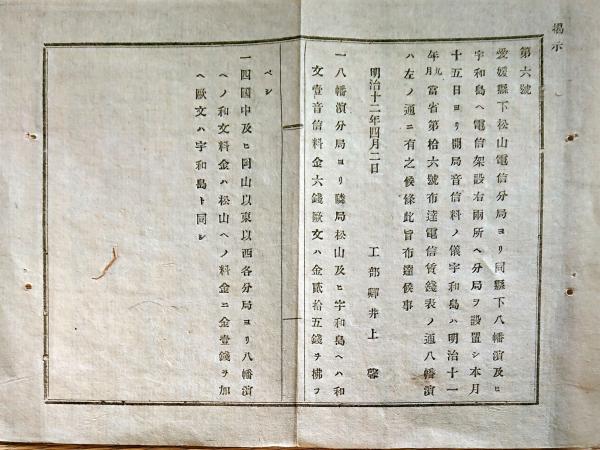 揭示
第六號
愛媛縣下松山電信分局ヨリ同縣下八幡濱及ヒ
宇和島ヘ電信架設右兩所ヘ分局ヲ設置シ本月
十五日ヨリ開局音信料ノ儀宇和島ハ明治十一
年九月當省第拾六號布達電信賃錢表ノ通八幡濱
ハ左ノ通ニ有之候條此旨布達候事
明治十二年四月二日 工部卿井上馨
一八幡濱分局ヨリ隣局松山及ヒ宇和島ヘハ和
文壹音信料金六錢歐文ハ金貳拾五錢ヲ拂フ
ベシ
一四國中及ヒ岡山以東以西各分局ヨリ八幡濱
ヘノ和文料金ハ松山ヘノ料金ニ金壹錢ヲ加
ヘ歐文ハ宇和島ト同シ